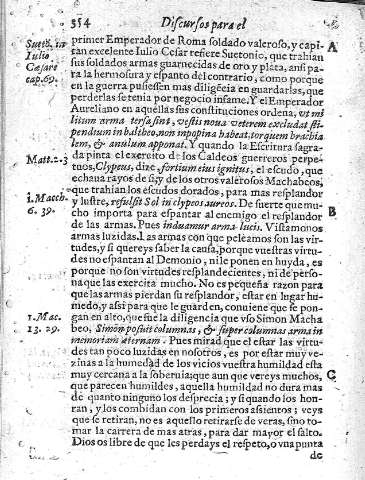 354 Discursos para el
primer Emperador de Roma soldado valeroso, y capi-
tan excelente Iulio Cesar refiere Suetonio, que trahian
sus soldados armas guarnecidas de oro y plata, ansi pa-
ra la hermosura y espanto del contrario, como porque
en la guerra pusiessen mas diligẽcia en guardarlas, que
perderlas se tenia por negocio infame. Y el Emperador
Aureliano en aquellas sus constituciones ordena, vt mi
litum arma tersa sint, vestis noua veterem excludat sti-
pendium in balteo, non in popina habeat, torquem brachia
lem, & anulum apponat. Y quando la Escritura sagra-
da pinta el exercito de los Caldeos guerreros perpe-
tuos, Clypeus, dize, fortium eius ignitus, el escudo, que
echaua rayos de si, y de los otros valerosos Machabeos,
que trahian los escudos dorados, para mas resplandor
y lustre, refulsit Sol in clypeos aureos. De suerte que mu-
cho importa para espantar al enemigo el resplandor
de las armas. Pues induamur arma lucis. Vistamonos
armas luzidas. Las armas con que peleamos son las vir-
tudes, y si quereys saber la causa, porque vuestras virtu-
des no espantan al Demonio, ni le ponen en huyda, es
porque no son virtudes resplandecientes, ni de perso-
na que las exercita mucho. No es pequeña razon para
que las armas pierdan su resplandor, estar en lugar hu-
medo, y assi para que le guarden, conuiene que se pon-
gan en alto, que fue la diligencia que vso Simon Macha
beo, Simon posuit columnas, & super columnas arma in
memoriam æternam. Pues mirad que el estar las virtu-
des tan poco luzidas en nosotros, es por estar muy ve-
zinas a la humedad de los vicios vuestra humildad esta
muy cercana a la soberuia; que aun que vereys muchos,
que parecen humildes, aquella humildad no dura mas
de quanto ninguno los desprecia; y si quando los hon-
ran, y los combidan con los primeros assientos; veys
que se retiran, no es aquello retirarse de veras, sino to-
mar la carrera de mas atras, para dar mayor el salto.
Dios os libre de que les perdays el respeto, o vna punta
de
Suetõ. in
Iulio
Cæsare
cap. 69.
1. Macch.
6. 39.
1. Mac.
13. 29.
A
B
C